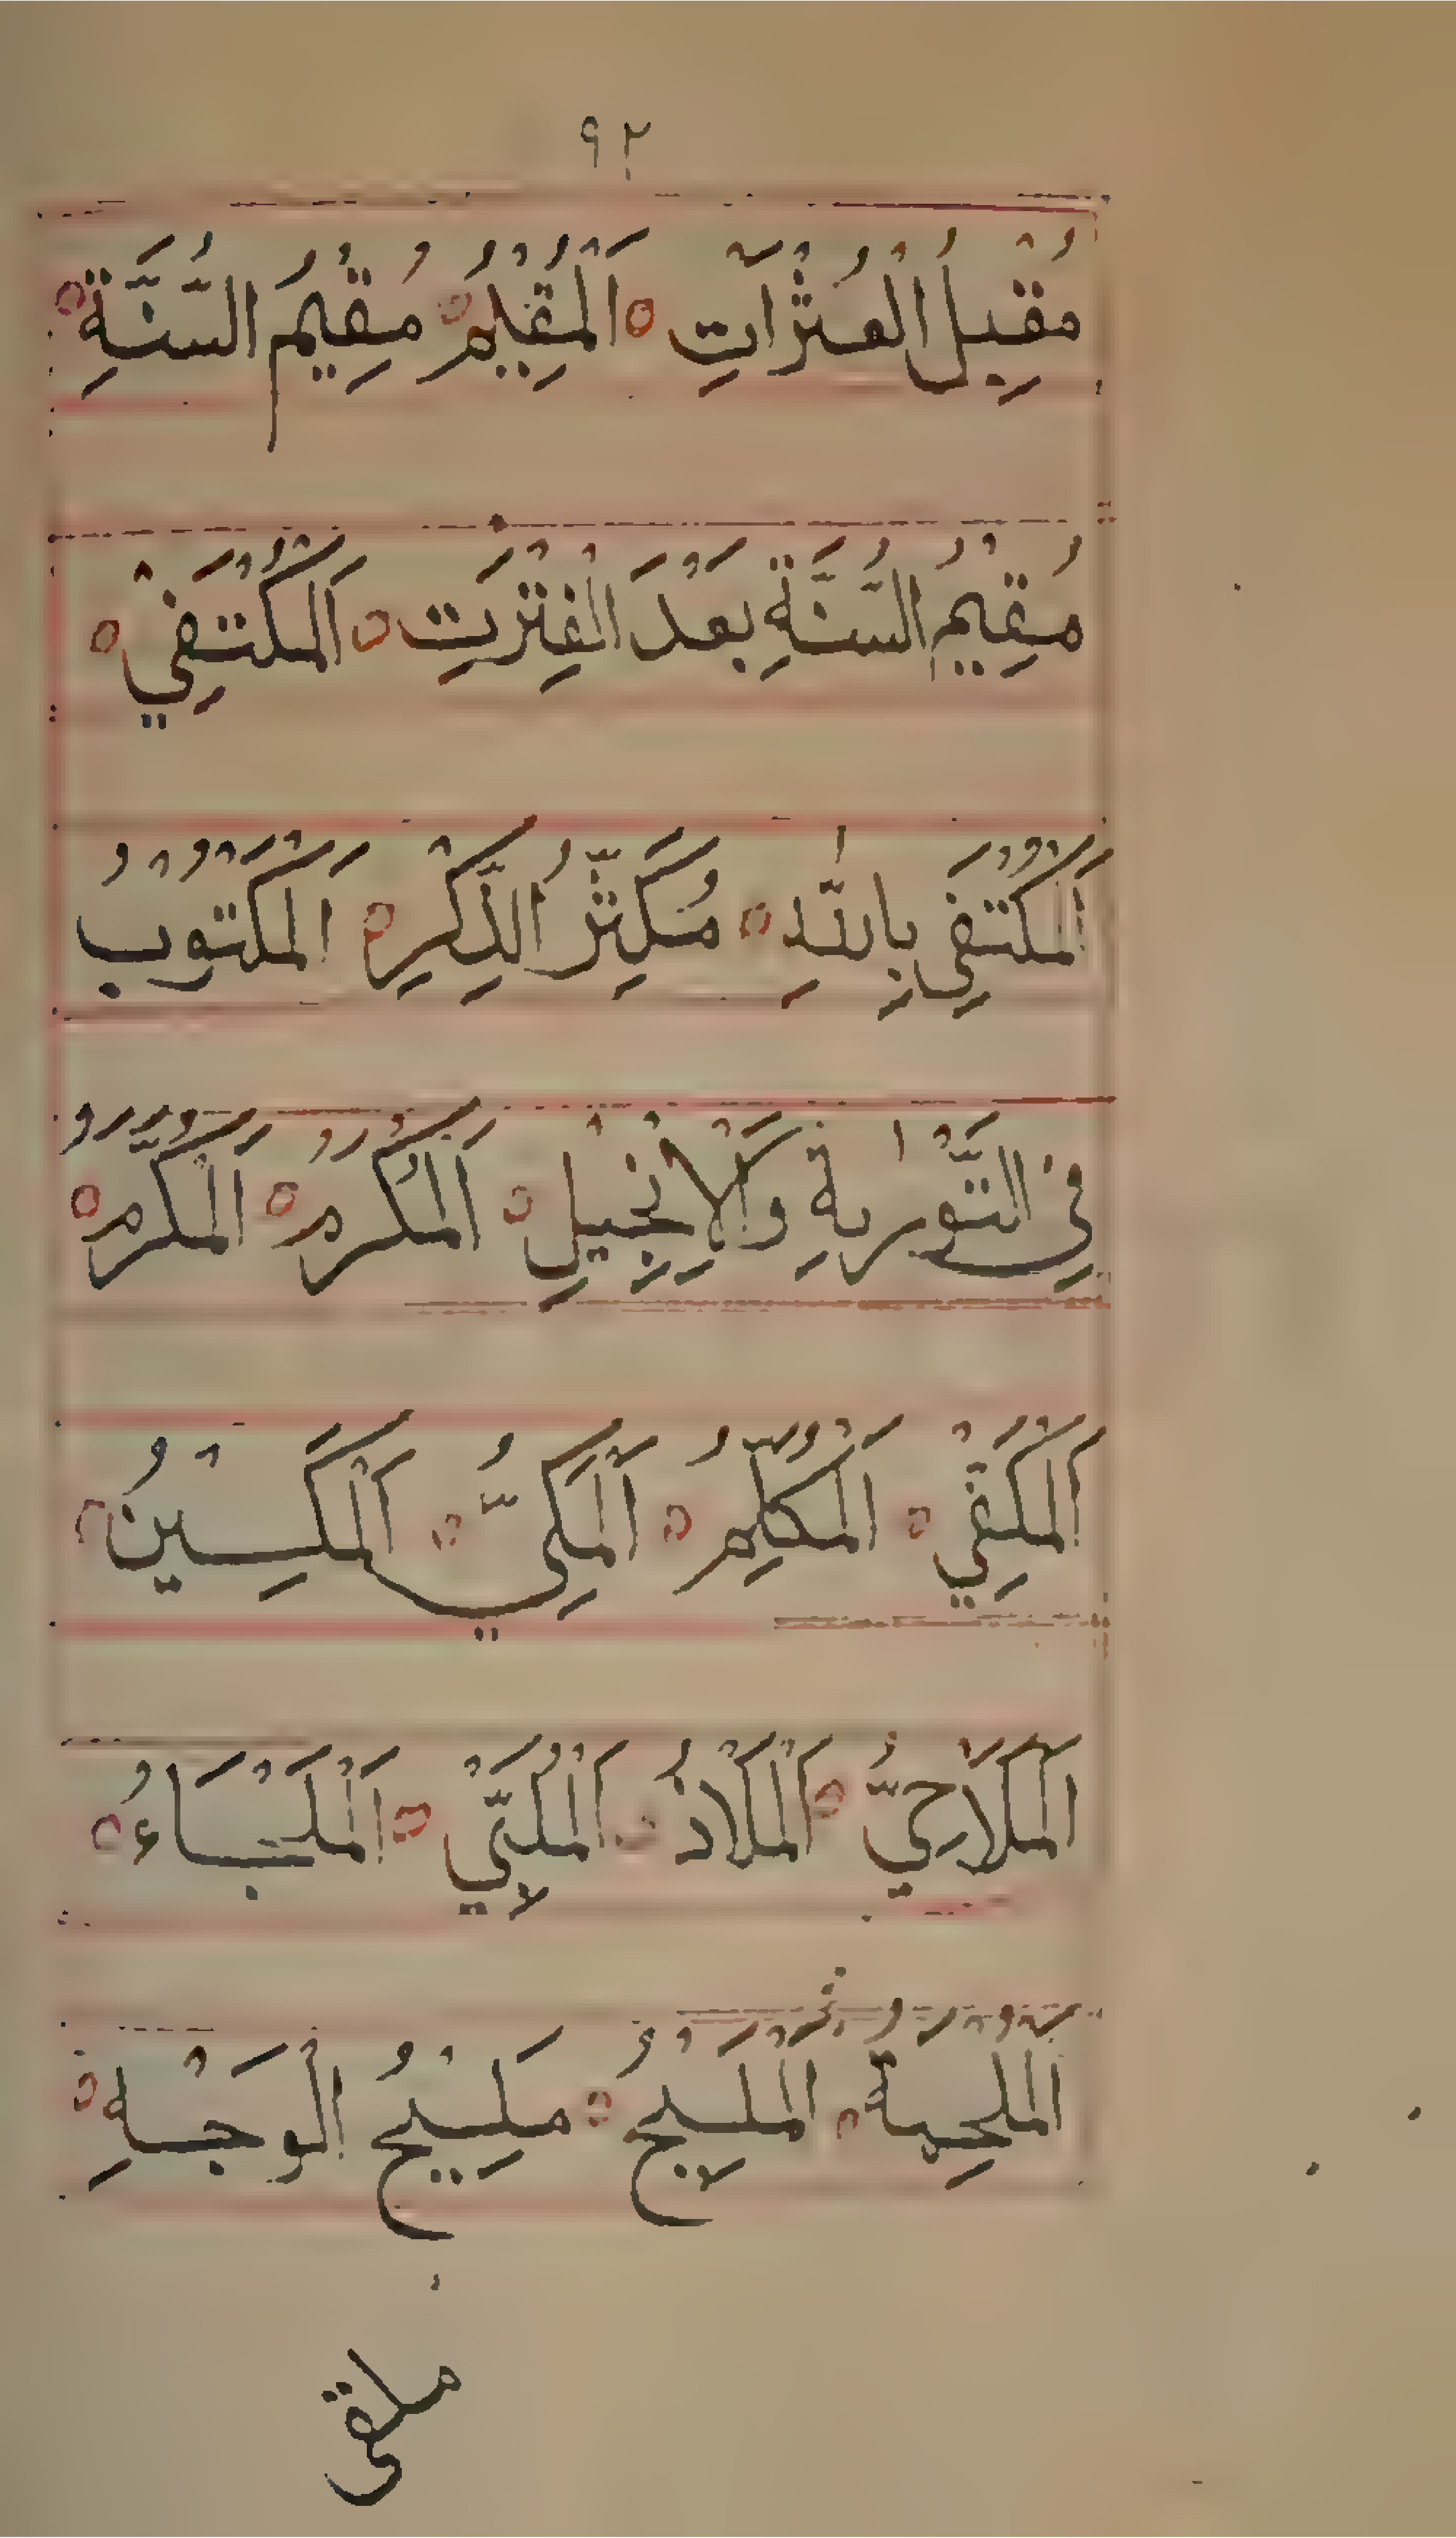 ٩٢
مُقِيْلُ الْعَثْرَاتِ ۝ اَلْمُقِيْمُ ۝ مُقِيْمُ السُّنَّةِ ۝
مُقِيْمُ السُّنَّةِ بَعْدَ الْفَتْرَتِ ۝ اَلْمُكْتَفِيْ ۝
اَلْمُكْتَفِيْ بِاللّٰهِ ۝ مُكَثِّرُ الذِّكْرِ ۝ اَلْمَكْتُوْبُ
فِي التَّوْرٰىةِ وَالْاِنْجِيْلِ ۝ اَلْمُكْرَمُ ۝ اَلْمُكَرَّمُ ۝
اَلْمُكْفِيْ ۝ اَلْمُكَلِّمُ ۝ اَلْمَكِّيُّ ۝ اَلْمَكِيْنُ ۝
اَلْمَلَاحِمِيُّ ۝ اَلْمَلَاذُ ۝ اَلْمُلَبِّيْ ۝ اَلْمَلْجَاءُ ۝
اَلْمَلْحَمَةُ ۝ اَلْمَلِيْحُ ۝ مَلِيْحُ الْوَجْهِ ۝
ملقى